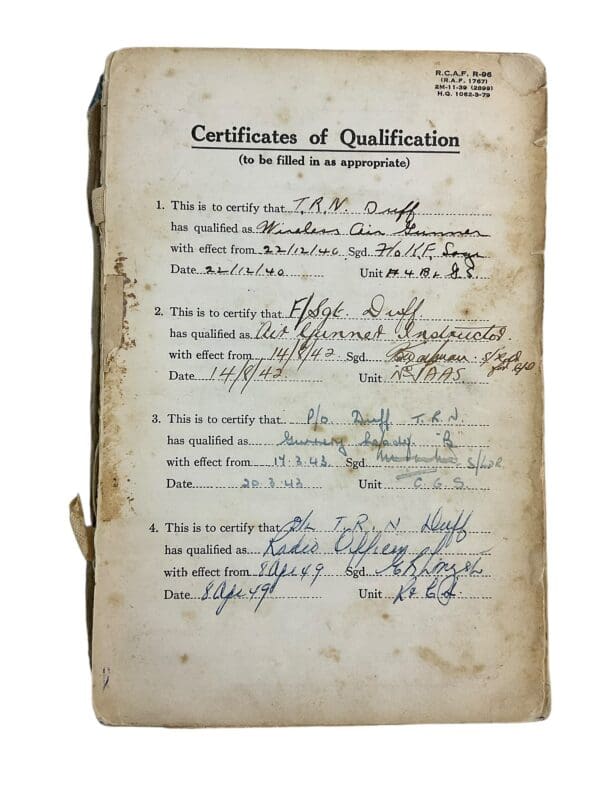 R.C.A.F. R-96
(R.A.F. 1767)
2M-11-39 (2899)
H.Q. 1062-3-79
Certificates of Qualification
(to be filled in as appropriate)
1. This is to certify that T.R.N. Duff
has qualified as Wireless Air Gunner
with effect from 22/12/40 Sgd. F/O K.F.
Date 22/12/40 Unit
2. This is to certify that F/Sgt. Duff
has qualified as Air Gunner Instructor
with effect from 14/8/42 Sgd.
Date 14/8/42 Unit
3. This is to certify that P/O. Duff T.R.N.
has qualified as Gunnery "B"
with effect from 17.3.43 Sgd. S/LDR
Date 20.3.43 Unit C.G.S.
4. This is to certify that T.R.N Duff
has qualified as Radio Officer
with effect from 8 Apr 49 Sgd.
Date 8 Apr 49 Unit